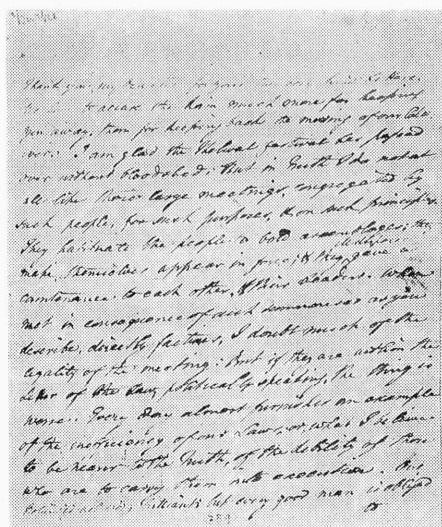 Thank you, my dear Sir for your two very kind Letters.
to accuse the Rain much more for keeping
you away, than for keeping back the mowing of our
over. I am glad the festival has passed
over without bloodshed. But in truth I do not at
all like those large meetings, congregated by
such people, for such purposes, & on such principles.
They habituate the people to bold assemblages; they
make themselves appear in force; & they gave a
countenance to each other, & their Leaders. When
met in consequence of such summonses as you
describe, directly factious, I doubt much of the
legality of the meeting: But if they are within the
letter of the Law, politically speaking, the thing is
worse. Every day almost furnishes an example
of the inefficiency of our Laws, or, what I believe
to be nearer to the truth, of the debility of those
who are to carry them into execution. But,
but every good man is obliged
or
289